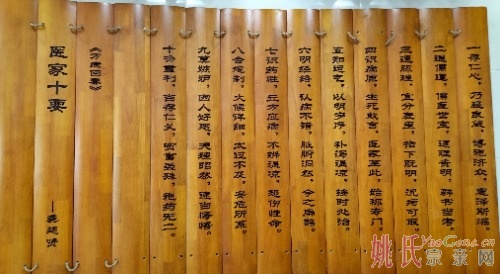 一存仁心，乃是良箴，博施济众，惠泽斯深。
二通儒道，儒医世宝，道理贵明，群书当考。
三通脉理，宜分表里，指下既明，沉疴可起。
四识病原，生死敢言，医家至此，始称专门。
五知运气，以明岁序，补泻温凉，按时处治。
六明经络，认病不错，脏腑洞然，今之扁鹊。
七识药性，立方应病，不辨温凉，恐伤性命。
八会炮制，火候详细，太过不及，安危所系。
九莫嫉妒，因人好恶，天理昭然，速当悔悟。
十勿重利，当存仁义，贫富虽殊，施药无二。
《万病回春》
医家十要
——龚廷贤
姚氏宗亲网
YaoGens.cn